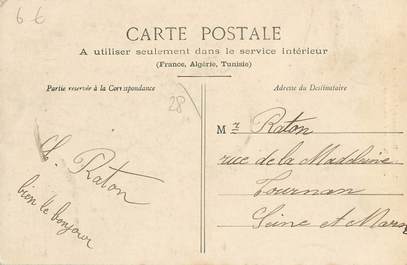 66
CARTE POSTALE
A utiliser seulement dans le service intérieur
(France, Algérie, Tunisie)
Partie reservée à la Correspondance
Adresse du Destinataire
28
L. Raton
bien le bonjour
Mr Raton
rue de la Madeleine
Tournan
Seine et Marne